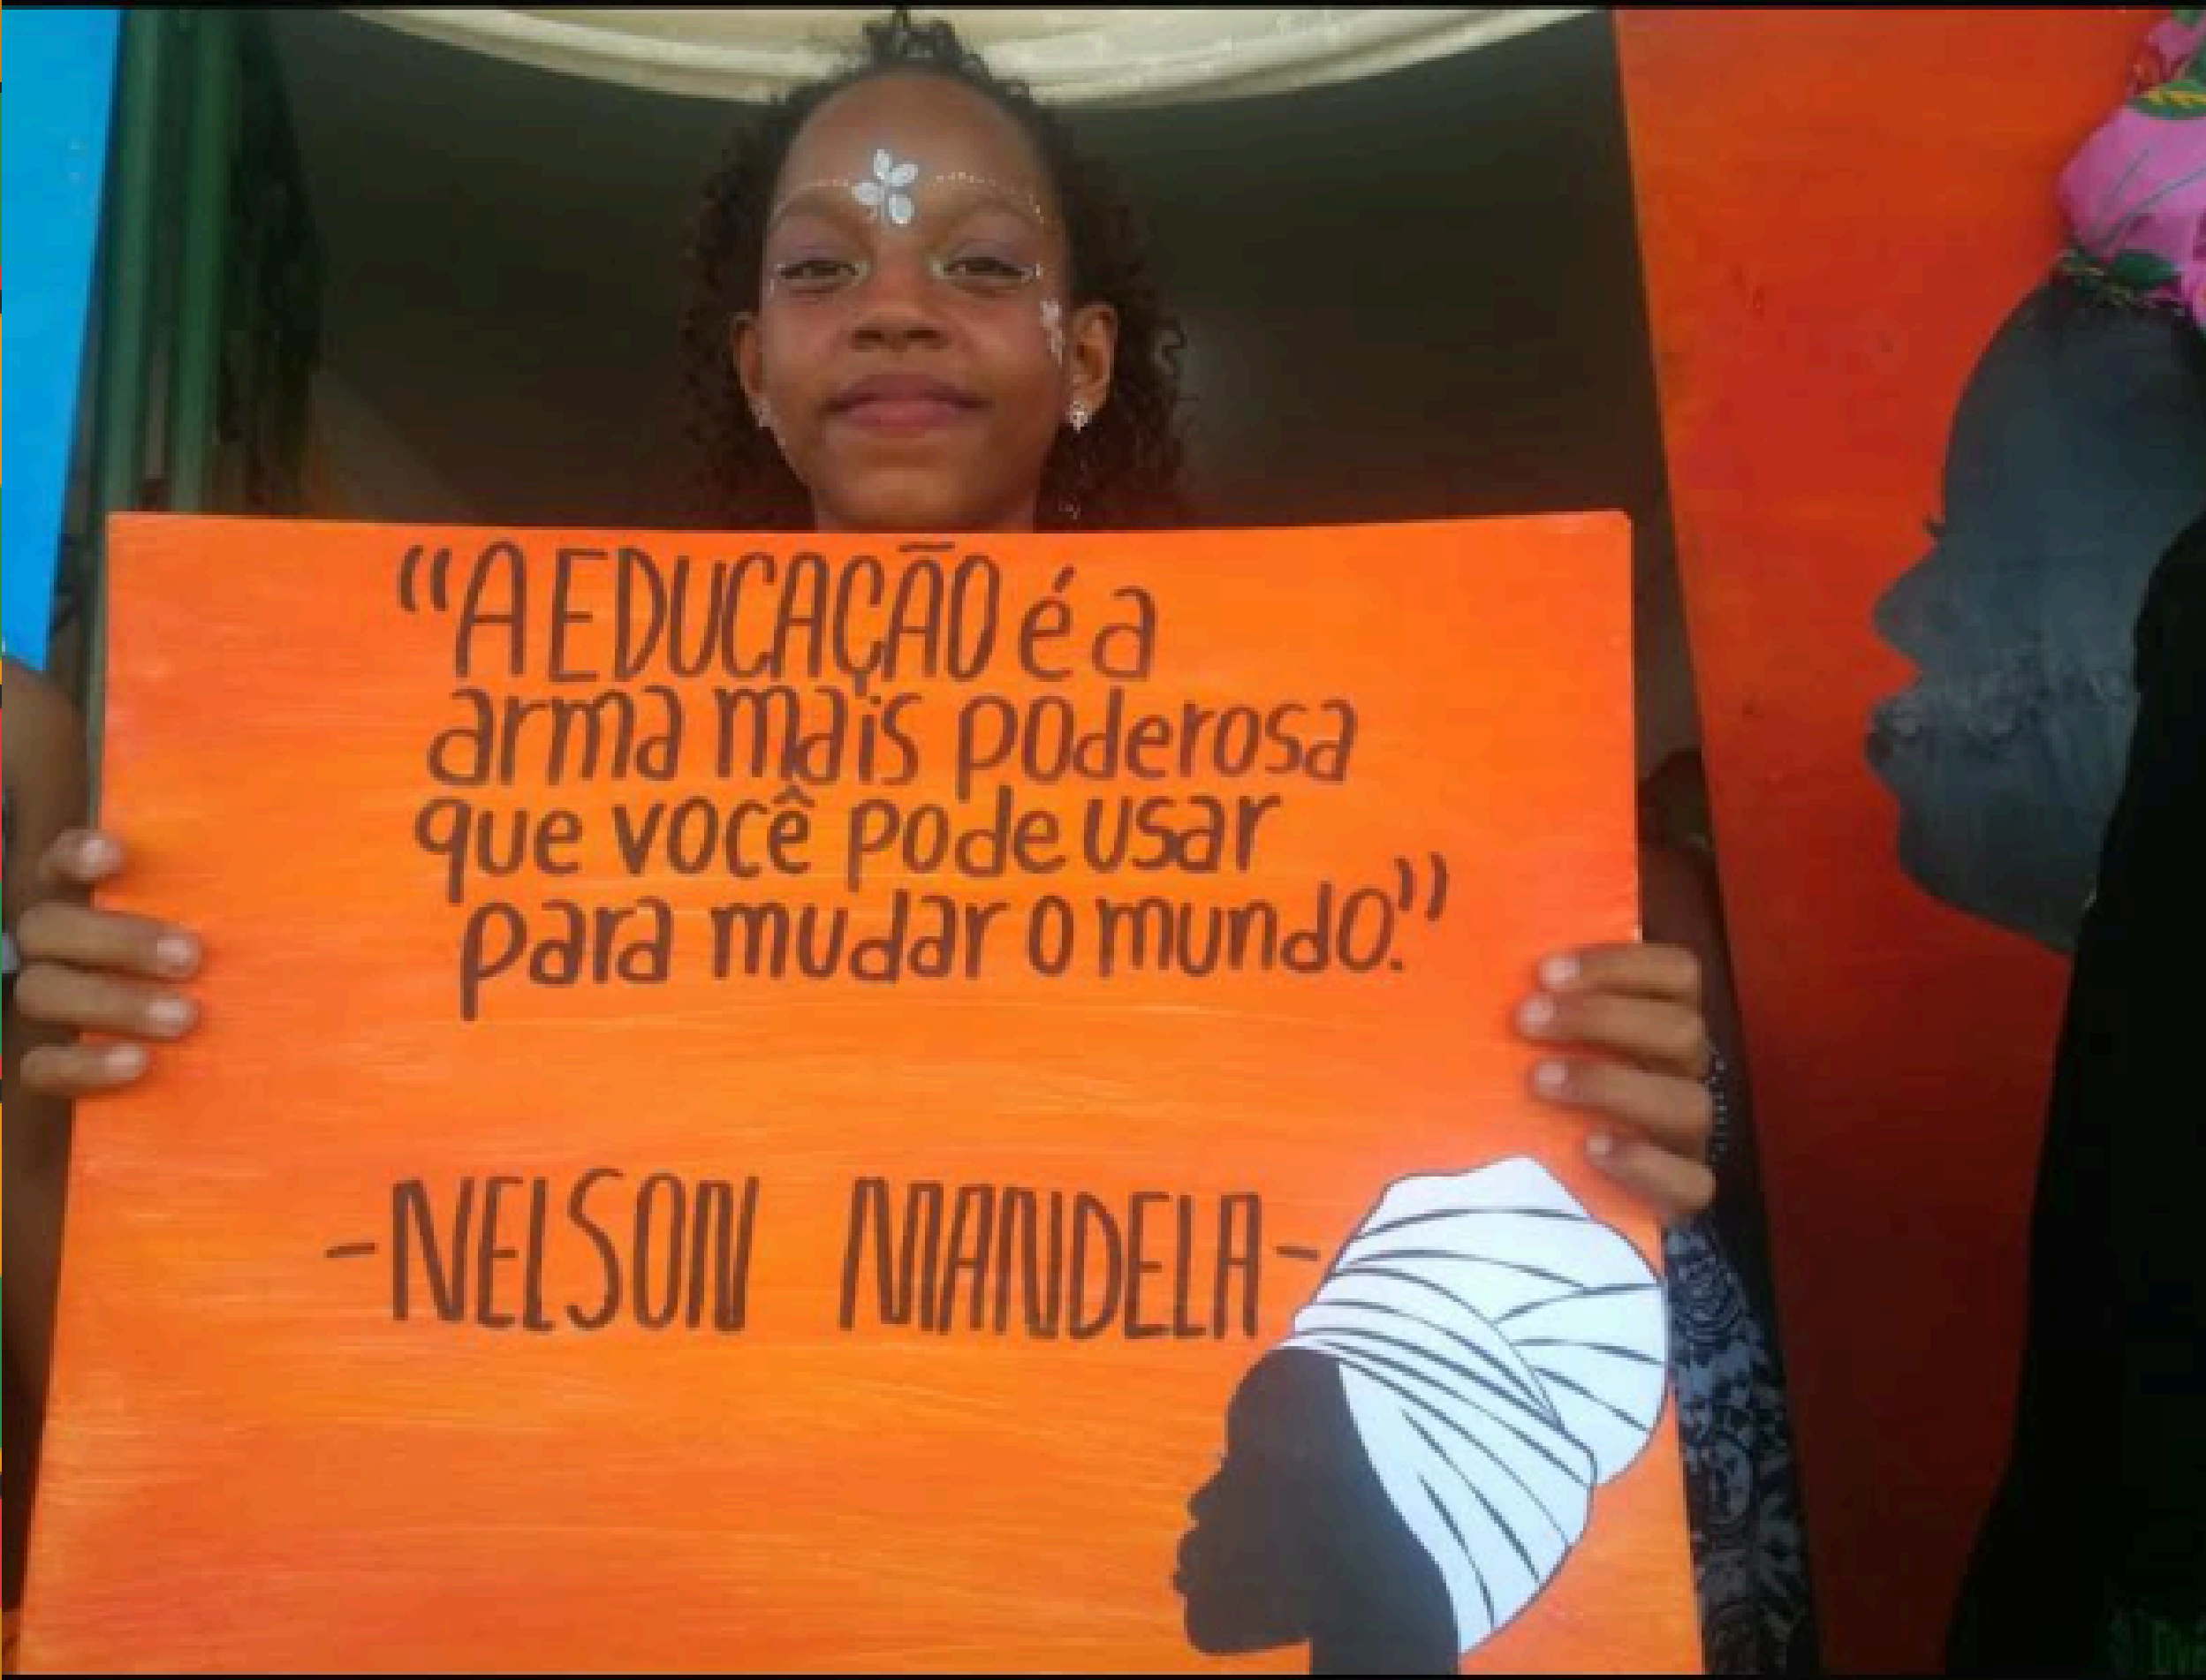 “A EDUCAÇÃO é a
arma mais poderosa
que você pode usar
para mudar o mundo.”
-NELSON MANDELA-